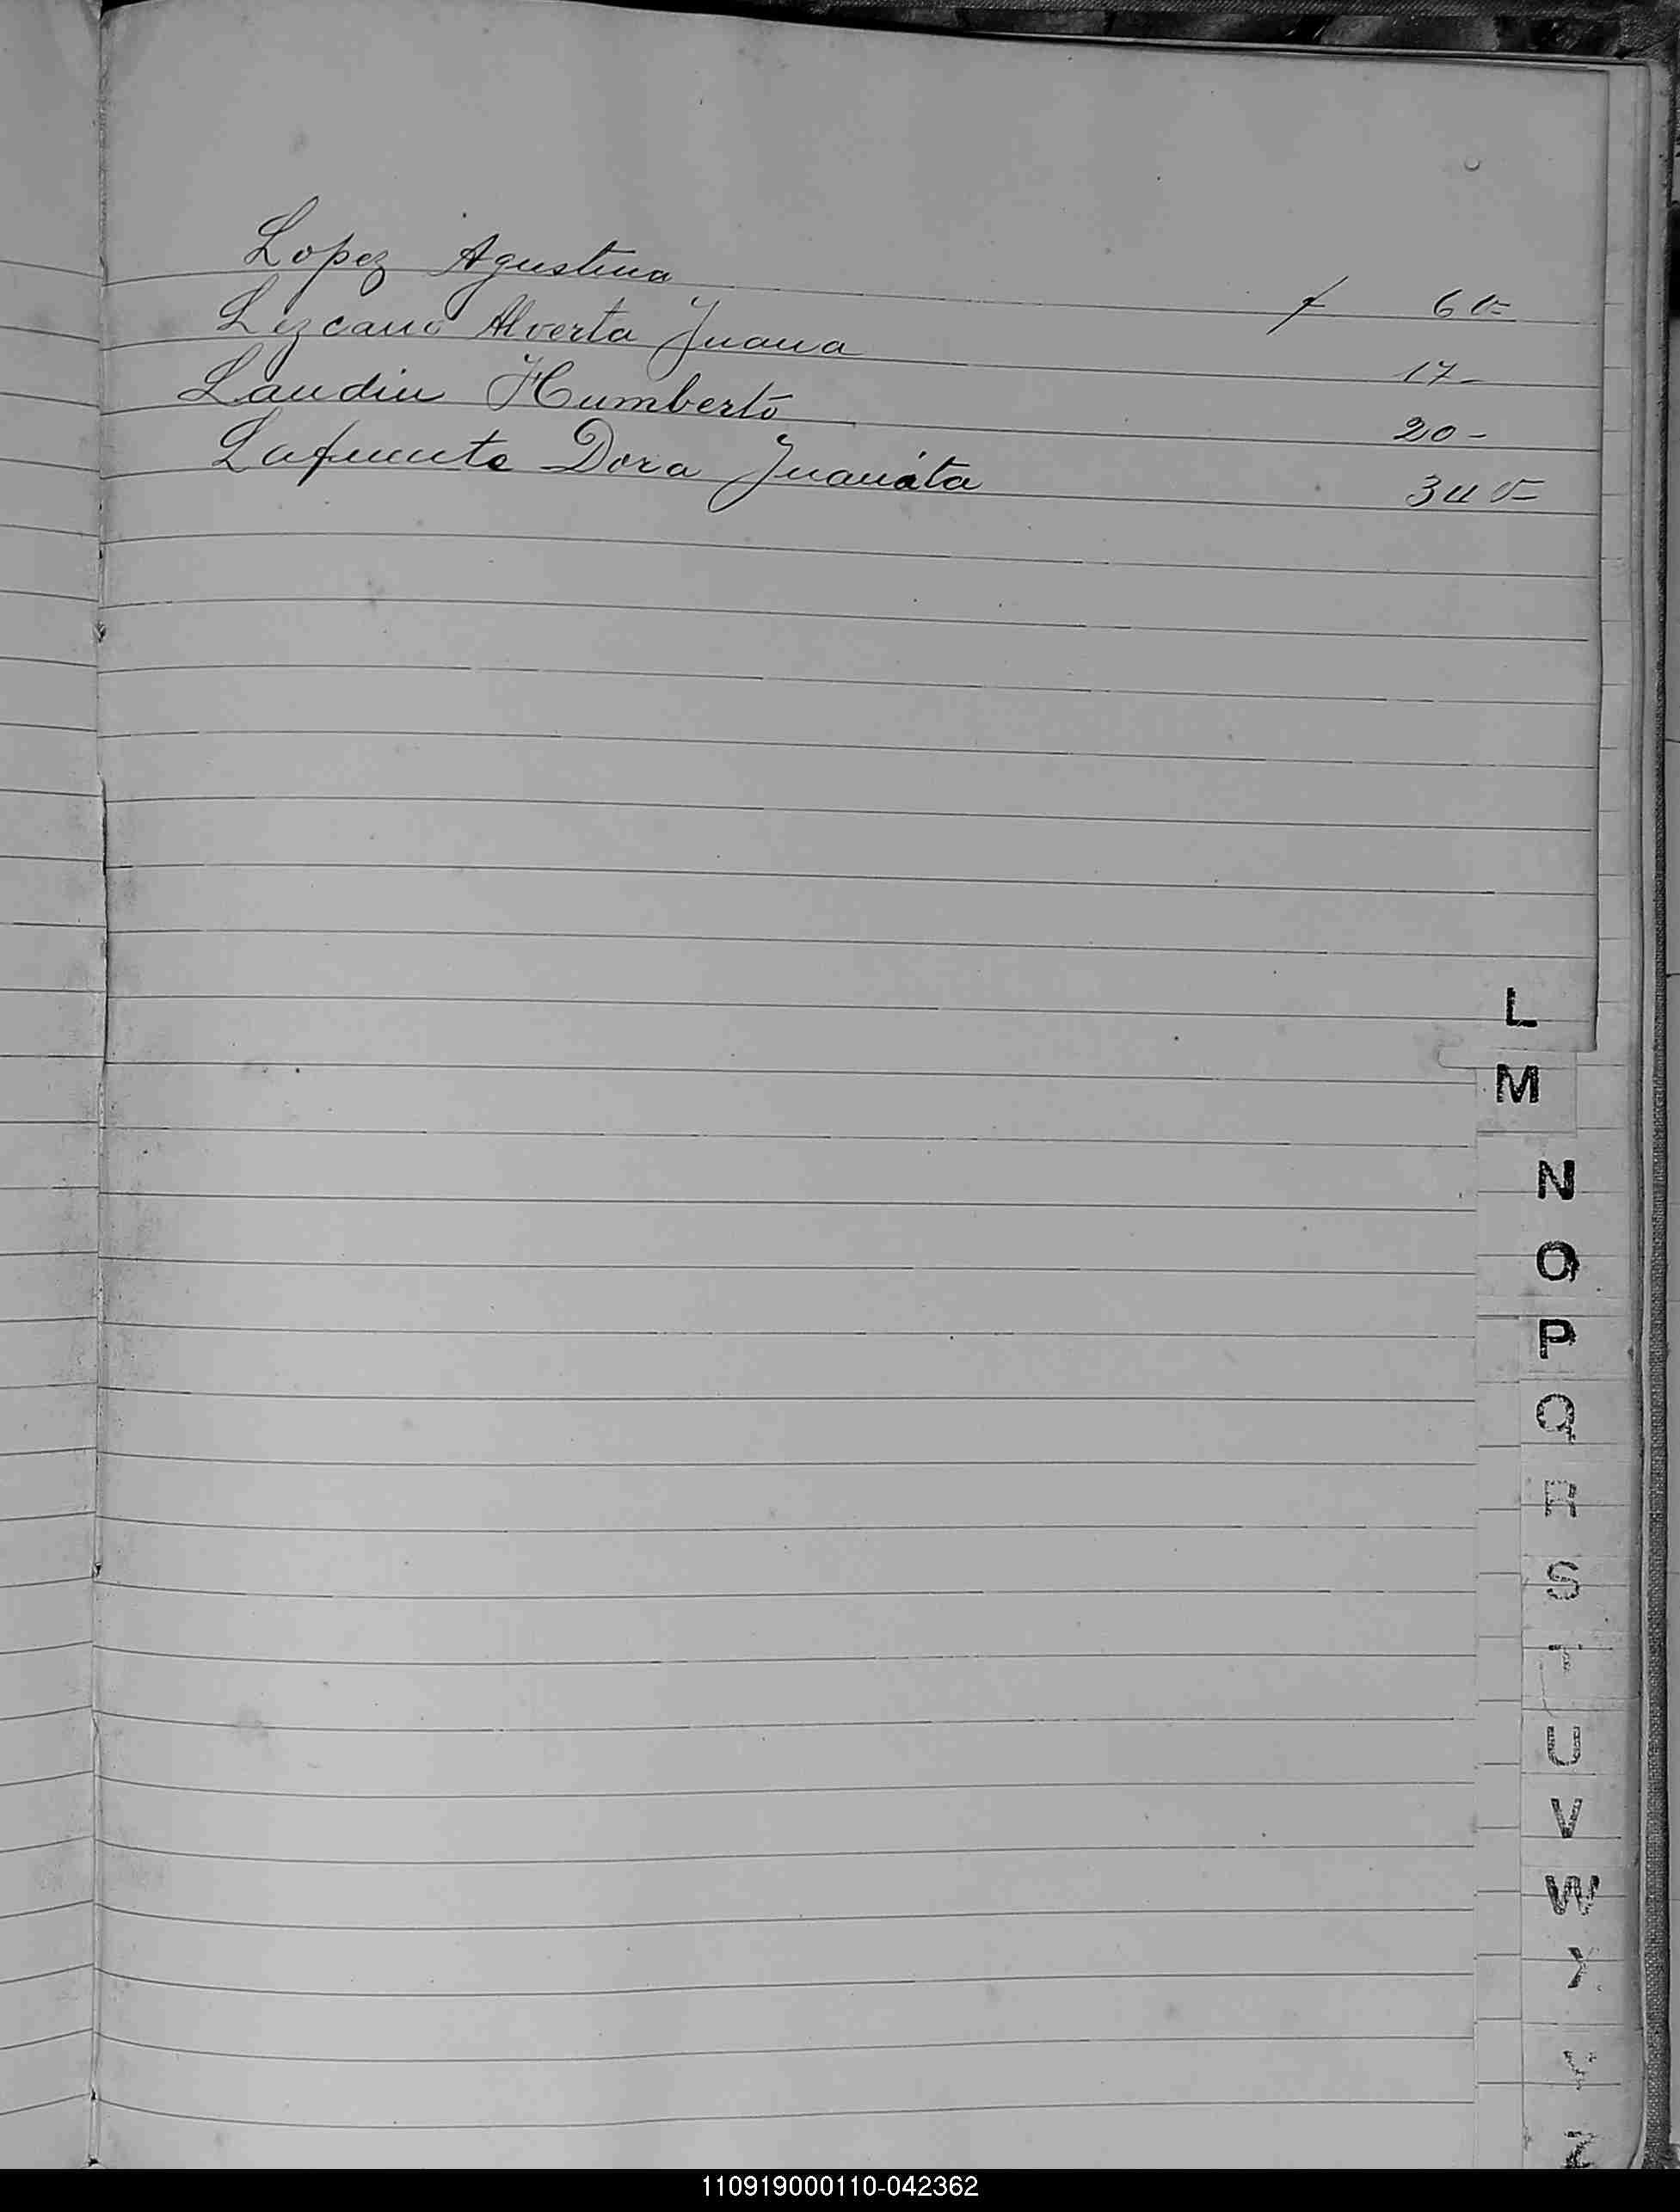 Lopez Agustina f 6 v=
Lezcano Alverta Juana 17-
Laudin Humberto 20-
Lafuente Dora Juanita 34 v=
L
M
N
O
P
Q
R
S
T
U
V
W
X
Y
Z
110919000110-042362